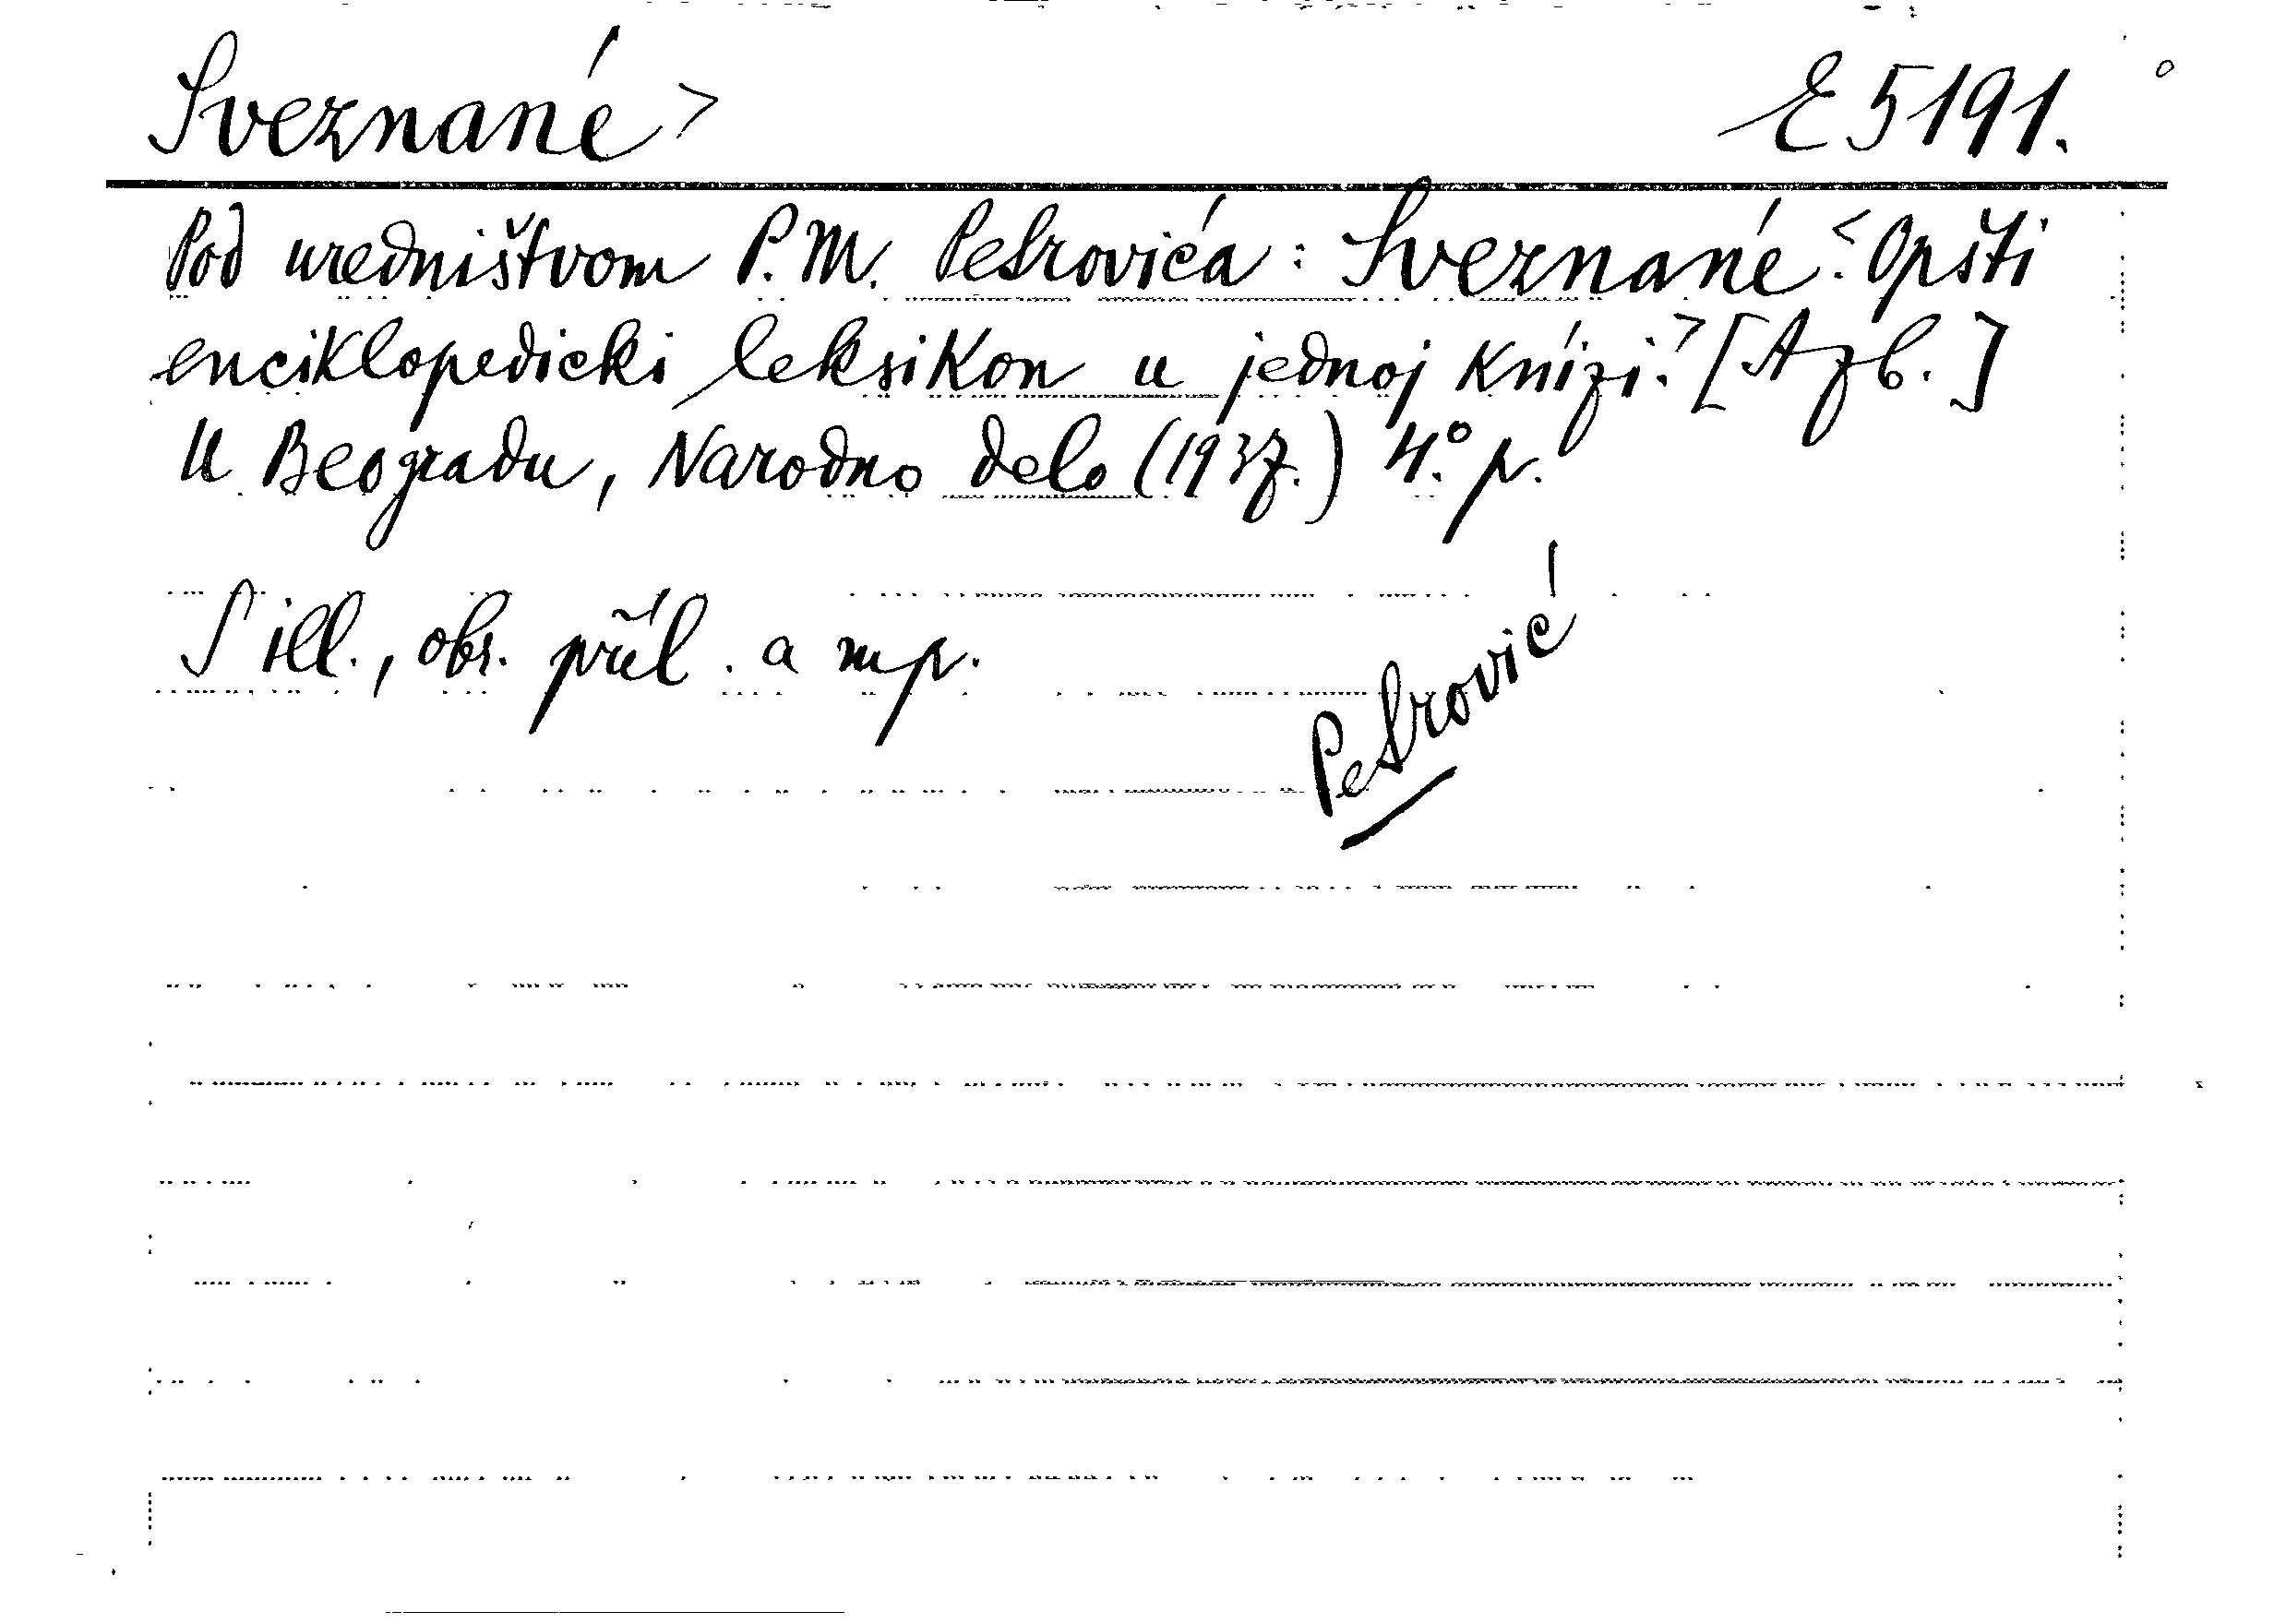 Sveznańe > E 5191.
Pod uredništvom P. M. Petrovića: Sveznańe. < Opšti
enciklopedicki leksikon u jednoj kńizi. > [Azb.]
U Beogradu, Narodno delo (1937.) 4.° p.
S ill., obr. příl. a mp.
Petrović